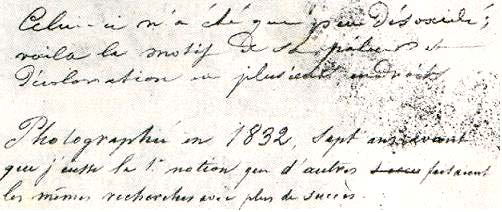 Celui-ci n'a été que peu désoxidé;
voila la motif de sa pâleur et
décoloration en plusieurs endroits
Photographié en 1832, sept ans avant
que j'eusse la 1e notion que d'autres faisaient
les mêmes recherches avec plus de succès.